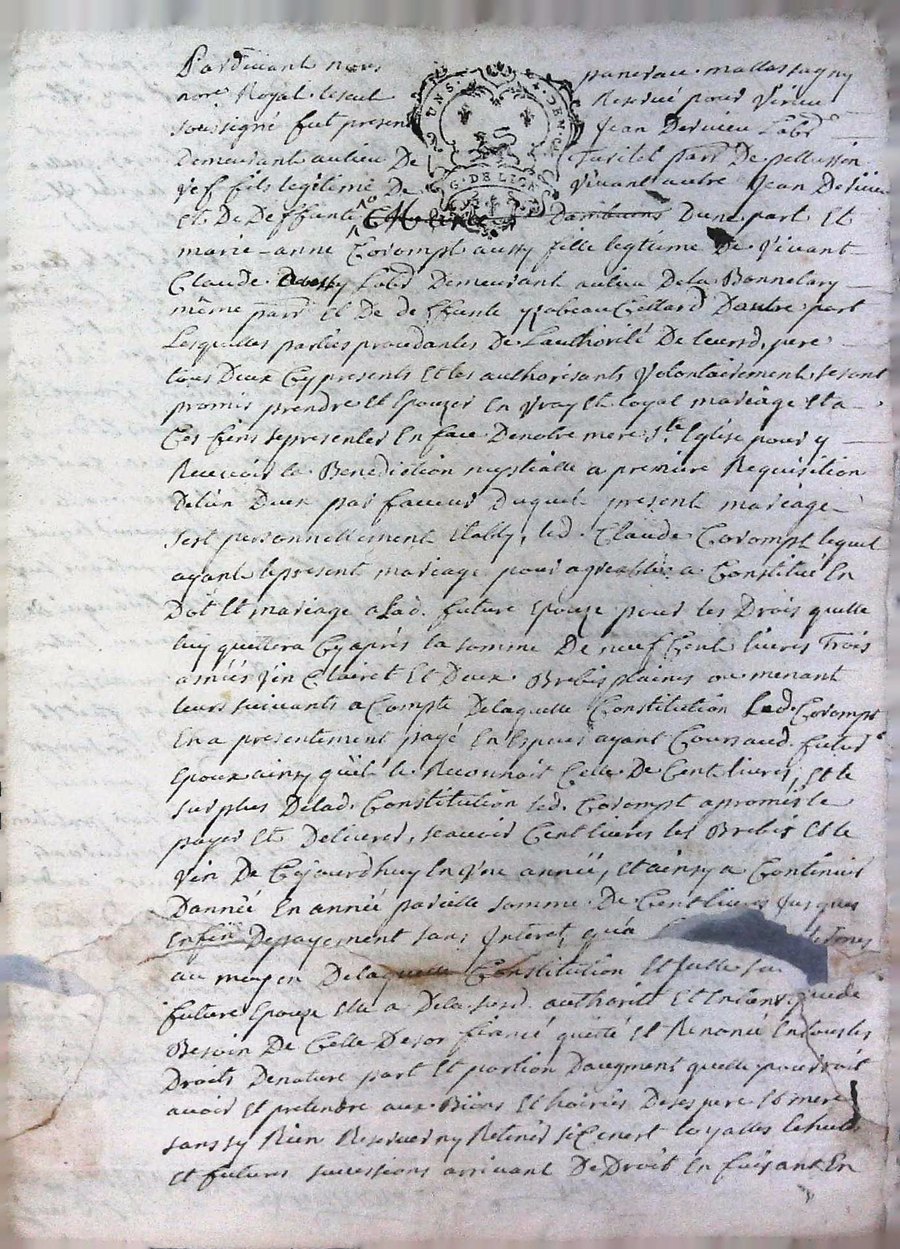 Pardevant nous
nore Royal
soussigné fut present Jean Dervieu Labr
Demeurant au lieu De parr De pellussin
fils legitime De vivant autre Jean Dervieu
Et De Deffunte D'une part Et
marie-anne Corompt aussy fille legitime De vivant
Claude Labr Demeurant au lieu De la Bonnelary
même parr Et De deffunte ysabeau Cellard D'autre part
Lesquelles parties procedantes De L'authorité De leursd. pere
tous Deux Cy presents Et les authorisants volontairement se sont
promis prendre Et Epouzer En vray Et loyal mariage Et a
Ces fins se presenter En face De notre mere Ste Eglise pour y
Recevoir la Benediction nuptialle a premiere Requisition
De l'un D'eux par faveur Duquel present mariage
s'est personnellement Etably, led. Claude Corompt lequel
ayant le present mariage pour agreable a Constitué En
Dot Et mariage a Lad. future Epouze pour les Droits quelle
luy quittera Cy après la somme De neuf Cent livres Trois
asnées vin Clairet Et Deux Brebis plaines ou menant
leurs suivants a Compte De laquelle Constitution Led. Corompt
En a presentement payé En Especes ayant Cours aud. futur
Epoux ainsy qu'il le Reconnoit Celle De Cent livres, Et le
surplus De lad. Constitution led. Corompt a promis le
payer Et Delivrer, scavoir Cent livres les Brebis Et le
vin De Cejourd'huy En une année, Et ainsy a Continuer
D'année En année pareille somme De Cent livres jusques
Enfin De payement sans Interet, qu'a termes
au moyen De laquelle Constitution Et faitte sa
future Epouze Elle a De la susd. authorité Et En tant que de
Besoin De Celle De sor fiancé quitté Et Renoncé En tous les
Droits De nature part Et portion D'augment quelle pourroit
avoir Et pretendre aux Biens Et hoiries De ses pere Et mere
sans sy Rien Reserver ny Retenir si Ce n'est loyalles Echutes
Et futures successions arrivant De Droit En faisant En
G. DE LION